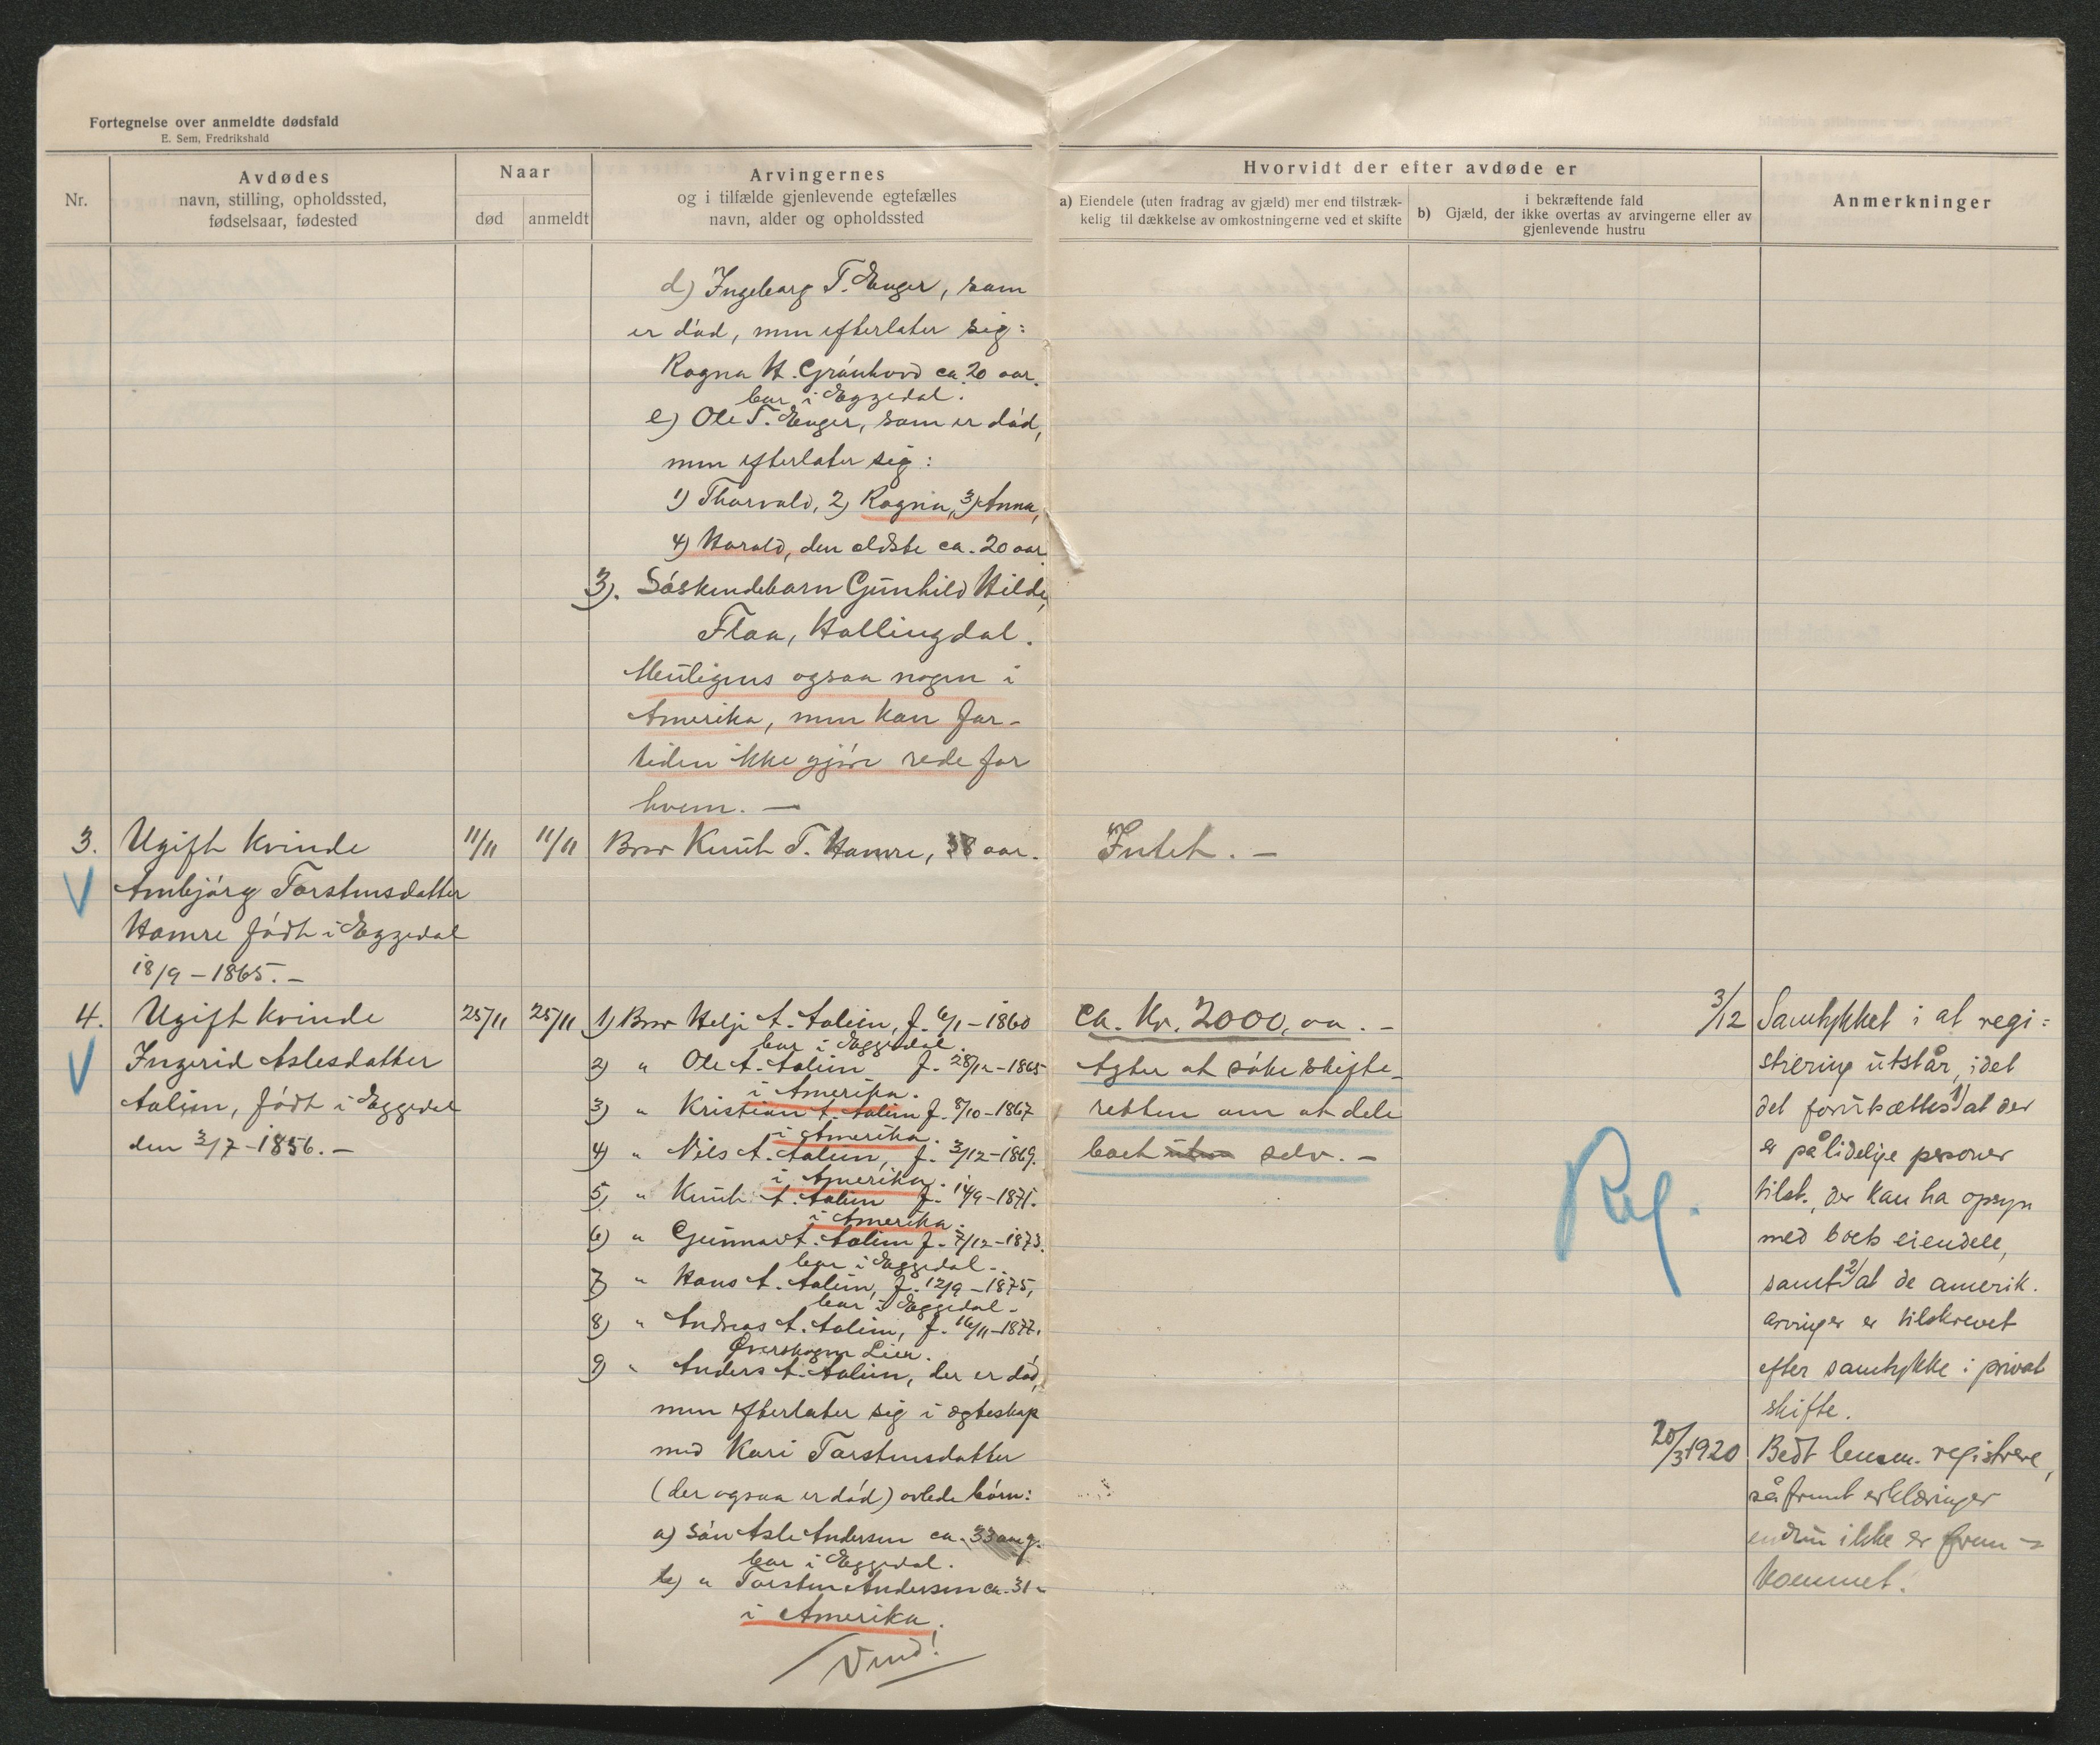 Fortegnelse over anmeldte dødsfald
E. Sem, Fredrikshald
Nr.
Avdødes
navn, stilling, opholdssted,
fødselsaar, fødested
Naar
død
anmeldt
Arvingernes
og i tilfælde gjenlevende egtefælles
navn, alder og opholdssted
Hvorvidt der efter avdøde er
a) Eiendele (uten fradrag av gjæld) mer end tilstræk-
kelig til dækkelse av omkostningerne ved et skifte
i bekræftende fald
b) Gjæld, der ikke overtas av arvingerne eller av
gjenlevende hustru
Anmerkninger
d) Ingeborg T. Enger, som
er død, men efterlater sig:
Ragna H. Grønhovd ca. 20 aar.
bor i Eggedal.
e) Ole T. Enger, som er død,
men efterlater sig:
1) Thorvald, 2) Ragna, 3) Anna,
4) Harald, den ældste ca. 20 aar
3). Søskendebarn Gunhild Hilde,
Flaa, Hallingdal.
Muligens ogsaa nogen i
Amerika, men kan for-
tiden ikke gjøre rede for
hvem. —
3. Ugift kvinde 11/11 11/11 Bror Knut T. Hamre, 38 aar. Intet. —
Ambjørg Torstensdatter
Hamre født i Eggedal
18/9 - 1865. —
4. Ugift kvinde 25/11 25/11 1) Bror Helje A. Aalien, f. 6/1 - 1860
bor i Eggedal.
Ingerid Aslesdatter
Aalien, født i Eggedal
den 3/7 - 1856. —
2) " Ole A. Aalien f. 28/12 - 1865
i Amerika.
3) " Kristian A. Aalien f. 8/10 - 1867
i Amerika.
4) " Nils A. Aalien, f. 3/12 - 1869.
i Amerika.
5) " Knut A. Aalien f. 14/9 - 1871.
i Amerika.
6) " Gunnar A. Aalien f. 7/12 - 1873.
bor i Eggedal.
7) " Hans A. Aalien, f. 12/9 - 1875,
bor i Eggedal.
8) " Andreas A. Aalien, f. 16/11 - 1877.
Øverskogen Lien.
9) " Anders A. Aalien, der er død,
men efterlater sig i ægteskap
med Kari Torstensdatter
(der ogsaa er død) avlede børn:
a) Søn Asle Andersen ca. 33 aar g.
bor i Eggedal.
b) " Torsten Andersen ca. 31 "
i Amerika.
Vend!
ca. Kr. 2000,00. —
Agter at søke skifte-
retten om at dele
boet uten selv. —
Reg.
3/12 Samtykket i at regi=
strering utstår, idet
det forutsættes 1) at der
er pålidelige personer
tilst., der kan ha opsyn
med boets eiendele,
samt 2) at de amerik.
arvinger er tilskrevet
efter samtykke i privat
skifte.
20/3 1920 Bedt lensm. registrere,
såfremt erklæringer
endnu ikke er frem =
kommet.